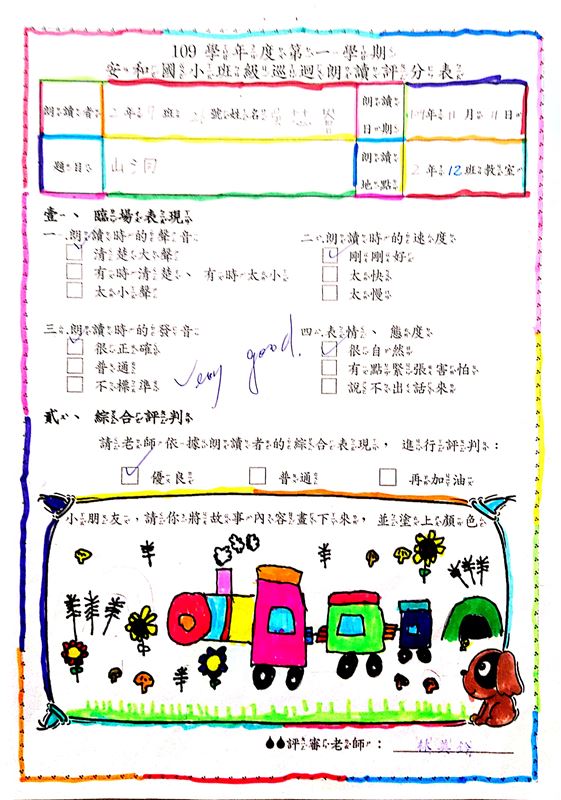 109 學年度第一學期
安和國小班級巡迴朗讀評分表
朗讀者 2年 班 號姓名 朗讀日期 年 11 月 日
題目 山 朗讀地點 2年12班教室
壹、 臨場表現
一.朗讀時的聲音 二.朗讀時的速度
清楚大聲 剛剛好
有時清楚、有時太小 太快
太小聲 太慢
三.朗讀時的發音 四.表情、態度
很正確 很自然
普通 有點緊張害怕
不標準 說不出話來
Very good.
貳、 綜合評判
請老師依據朗讀者的綜合表現，進行評判：
優良 普通 再加油
小朋友，請你將故事內容畫下來，並塗上顏色
評審老師：